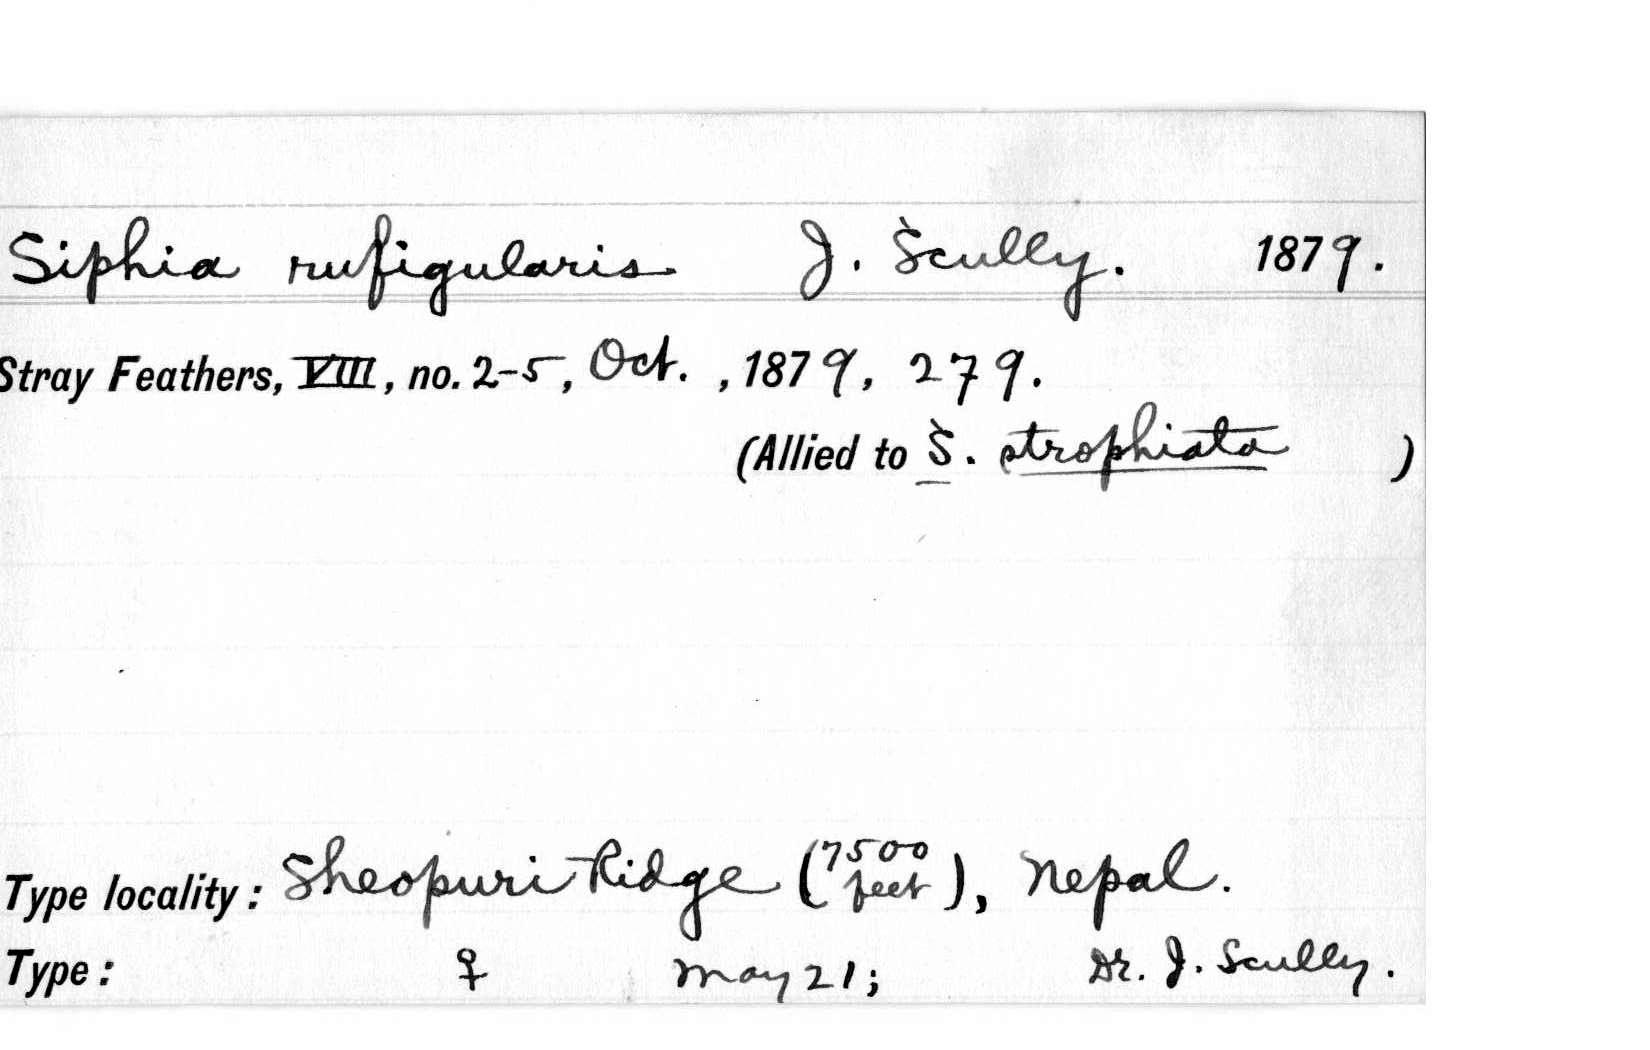 Siphia rufigularis J. Scully. 1879.
Stray Feathers, VIII, no. 2-5, Oct. , 1879, 279.
(Allied to S. strophiata )
Type locality: Sheopuri Ridge (7500 feet), Nepal.
Type: ♀ May 21; Dr. J. Scully.